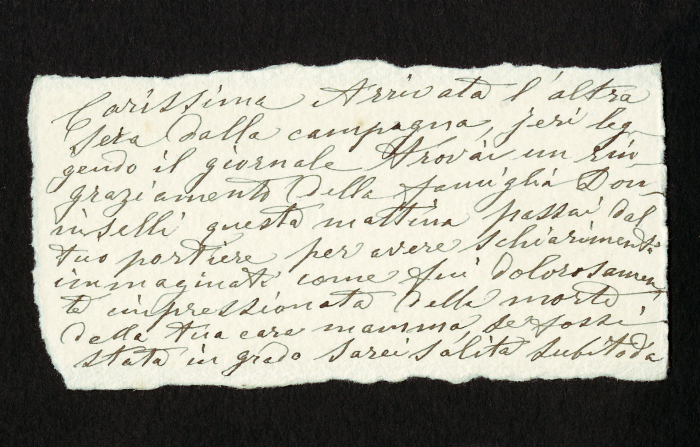 Carissima Arrivata l'altra
sera dalla campagna, jeri leg
gendo il giornale trovai un rin
graziamento della famiglia Don
niselli questa mattina passai dal
tuo portiere per avere schiarimenti
immaginati come fui dolorosamen
te impressionata della morte
della tua cara mamma, se fossi
stata in grado sarei salita subito da